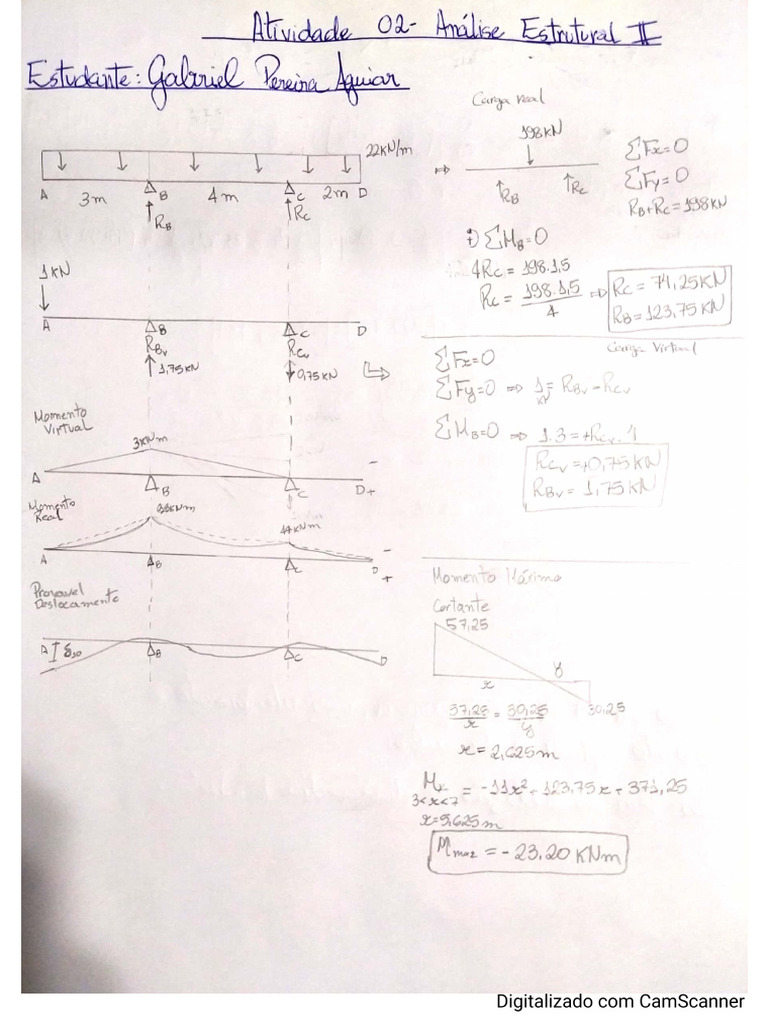 Atividade 02- Análise Estrutural II
Estudante: Gabriel Pereira Aguiar
Carga Real
22kN/m
A 3m B 4m C 2m D
RB RC
198kN
RB RC
ΣFx=0
ΣFy=0
RB+RC=198kN
ΣMB=0
4RC = 198.1,5
RC = 198.1,5 / 4 ⇒ RC = 74,25KN
RB=123,75KN
1KN
A B C D
RBv RCv
1,75KN 0,75KN
Carga Virtual
ΣFx=0
ΣFy=0 ⇒ 1kN = RBv-RCv
ΣMB=0 ⇒ 1.3=+RCv.4
RCv=+0,75KN
RBv= 1,75KN
Momento
Virtual
3KNm
A B C D
- +
Momento
Real
44KNm
A B C D
- +
Provavel
Deslocamento
A B C D
Momento Máximo
Cortante
57,25
x y
30,25
= 30,25 / y
x=2,625m
Mx = -11x²+123,75x+371,25
3<x<7
x=5,625m
Mmax = -23,20 KNm
Digitalizado com CamScanner